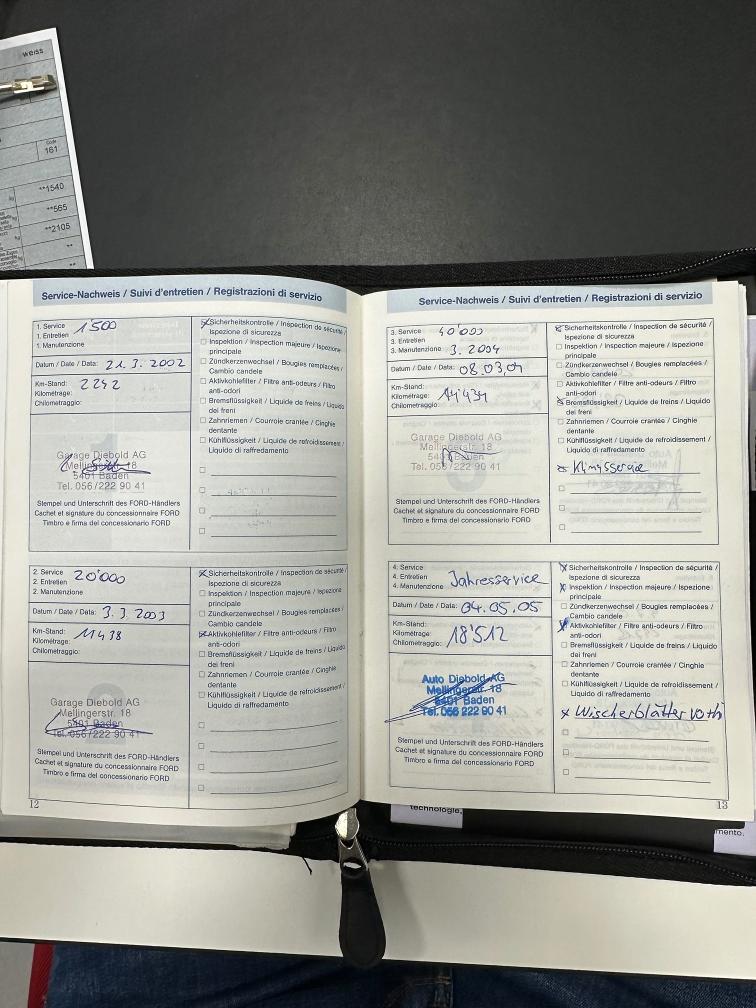 weiss
Code
161
**1540
**565
**2105
**
**
Service-Nachweis / Suivi d'entretien / Registrazioni di servizio
1. Service 1'500
1. Entretien
1. Manutenzione
Datum / Date / Data: 21.3.2002
Km-Stand: 2242
Kilométrage:
Chilometraggio:
Garage Diebold AG
Mellingerstr. 18
5401 Baden
Tel. 056/222 90 41
Stempel und Unterschrift des FORD-Händlers
Cachet et signature du concessionnaire FORD
Timbro e firma del concessionario FORD
Sicherheitskontrolle / Inspection de sécurité /
Ispezione di sicurezza
Inspektion / Inspection majeure / Ispezione
principale
Zündkerzenwechsel / Bougies remplacées /
Cambio candele
Aktivkohlefilter / Filtre anti-odeurs / Filtro
anti-odori
Bremsflüssigkeit / Liquide de freins / Liquido
dei freni
Zahnriemen / Courroie crantée / Cinghie
dentante
Kühlflüssigkeit / Liquide de refroidissement /
Liquido di raffredamento
2. Service 20'000
2. Entretien
2. Manutenzione
Datum / Date / Data: 3.3.2003
Km-Stand: 11438
Kilométrage:
Chilometraggio:
Garage Diebold AG
Mellingerstr. 18
5401 Baden
Tel. 056/222 90 41
Stempel und Unterschrift des FORD-Händlers
Cachet et signature du concessionnaire FORD
Timbro e firma del concessionario FORD
Sicherheitskontrolle / Inspection de sécurité /
Ispezione di sicurezza
Inspektion / Inspection majeure / Ispezione
principale
Zündkerzenwechsel / Bougies remplacées /
Cambio candele
Aktivkohlefilter / Filtre anti-odeurs / Filtro
anti-odori
Bremsflüssigkeit / Liquide de freins / Liquido
dei freni
Zahnriemen / Courroie crantée / Cinghie
dentante
Kühlflüssigkeit / Liquide de refroidissement /
Liquido di raffredamento
12
Service-Nachweis / Suivi d'entretien / Registrazioni di servizio
3. Service 40'000
3. Entretien
3. Manutenzione 3.2004
Datum / Date / Data: 08.03.04
Km-Stand:
Kilométrage: 14'434
Chilometraggio:
Garage Diebold AG
Mellingerstr. 18
5401 Baden
Tel. 056/222 90 41
Stempel und Unterschrift des FORD-Händlers
Cachet et signature du concessionnaire FORD
Timbro e firma del concessionario FORD
Sicherheitskontrolle / Inspection de sécurité /
Ispezione di sicurezza
Inspektion / Inspection majeure / Ispezione
principale
Zündkerzenwechsel / Bougies remplacées /
Cambio candele
Aktivkohlefilter / Filtre anti-odeurs / Filtro
anti-odori
Bremsflüssigkeit / Liquide de freins / Liquido
dei freni
Zahnriemen / Courroie crantée / Cinghie
dentante
Kühlflüssigkeit / Liquide de refroidissement /
Liquido di raffredamento
4. Service
4. Entretien Jahresservice
4. Manutenzione
Datum / Date / Data: 04.05.05
Km-Stand:
Kilométrage: 18'512
Chilometraggio:
Auto Diebold AG
Mellingerstr. 18
5401 Baden
Tel. 056 222 90 41
Stempel und Unterschrift des FORD-Händlers
Cachet et signature du concessionnaire FORD
Timbro e firma del concessionario FORD
Sicherheitskontrolle / Inspection de sécurité /
Ispezione di sicurezza
Inspektion / Inspection majeure / Ispezione
principale
Zündkerzenwechsel / Bougies remplacées /
Cambio candele
Aktivkohlefilter / Filtre anti-odeurs / Filtro
anti-odori
Bremsflüssigkeit / Liquide de freins / Liquido
dei freni
Zahnriemen / Courroie crantée / Cinghie
dentante
Kühlflüssigkeit / Liquide de refroidissement /
Liquido di raffredamento
Wischerblätter
13
technologie,
mento.